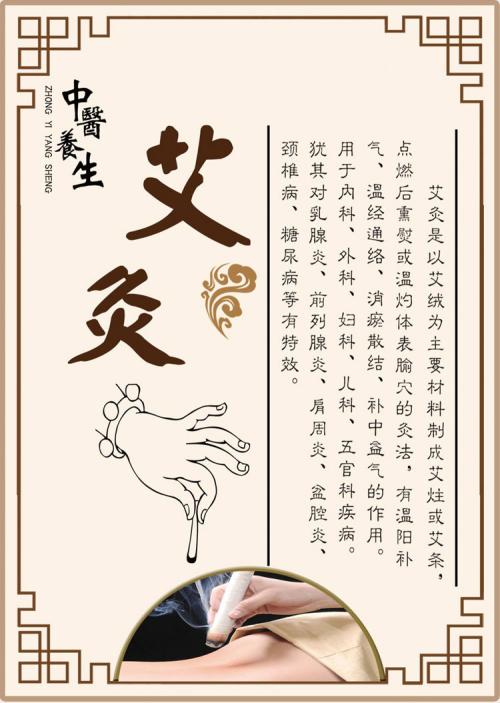 中醫養生
ZHONG YI YANG SHENG
艾灸
艾灸是以艾绒为主要材料制成艾炷或艾条，
点燃后熏熨或温灼体表腧穴的灸法，有温阳补
气、温经通络、消瘀散结、补中益气的作用。
用于内科、外科、妇科、儿科、五官科疾病。
犹其对乳腺炎、前列腺炎、肩周炎、盆腔炎、
颈椎病、糖尿病等有特效。